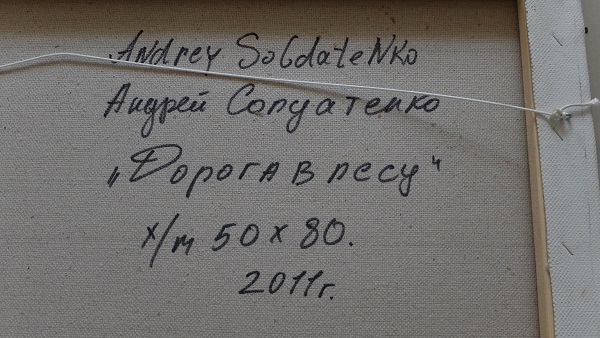 Andrey Soldatenko
Андрей Солдатенко
„Дорога в лесу"
х/м 50 х 80.
2011г.